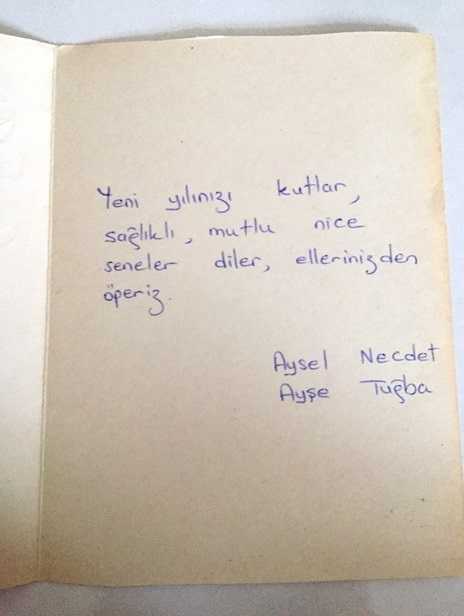 Yeni yılınızı kutlar,
sağlıklı, mutlu nice
seneler diler, ellerinizden
öperiz.
Aysel Necdet
Ayşe Tuğba